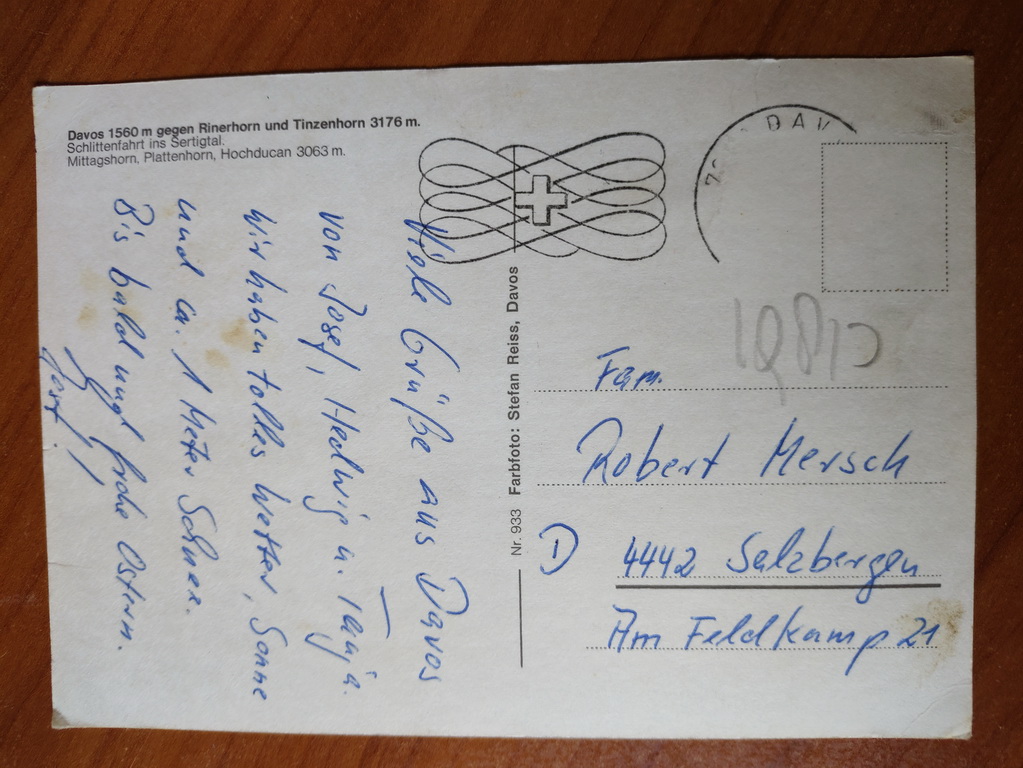 Davos 1560 m gegen Rinerhorn und Tinzenhorn 3176 m.
Schlittenfahrt ins Sertigtal.
Mittagshorn, Plattenhorn, Hochducan 3063 m.
Viele Grüße aus Davos
von Josef, Hedwig u. Tanja.
Wir haben tolles Wetter, Sonne
und ca. 1 Meter Schnee.
Bis bald und frohe Ostern.
Josef!
Nr. 933 Farbfoto: Stefan Reiss, Davos
DAV
Fam.
Robert Mersch
D 4442 Salzbergen
Am Feldkamp 21